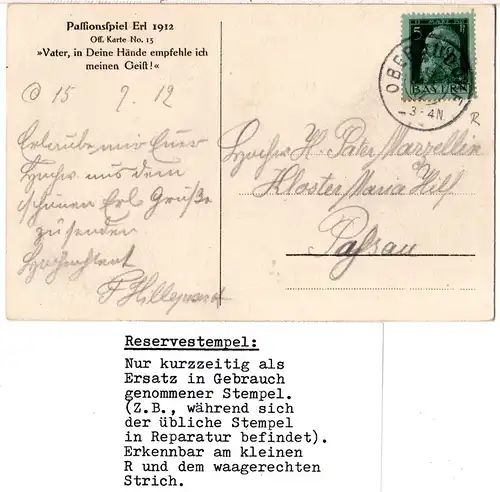 Passionsspiel Erl 1912
Off. Karte No. 15
»Vater, in Deine Hände empfehle ich
meinen Geist!«
15 9. 12
Erlaube mir Euer
Hochw. aus dem
schönen Erl Grüße
zu senden
Hochachtend
5 5
BAYERN
OBERAUDORF
3-4N.
R
Hochw. H. Pater Marzellin
Kloster Maria Hilf
Passau
Reservestempel:
Nur kurzzeitig als
Ersatz in Gebrauch
genommener Stempel.
(Z.B., während sich
der übliche Stempel
in Reparatur befindet).
Erkennbar am kleinen
R und dem waagerechten
Strich.